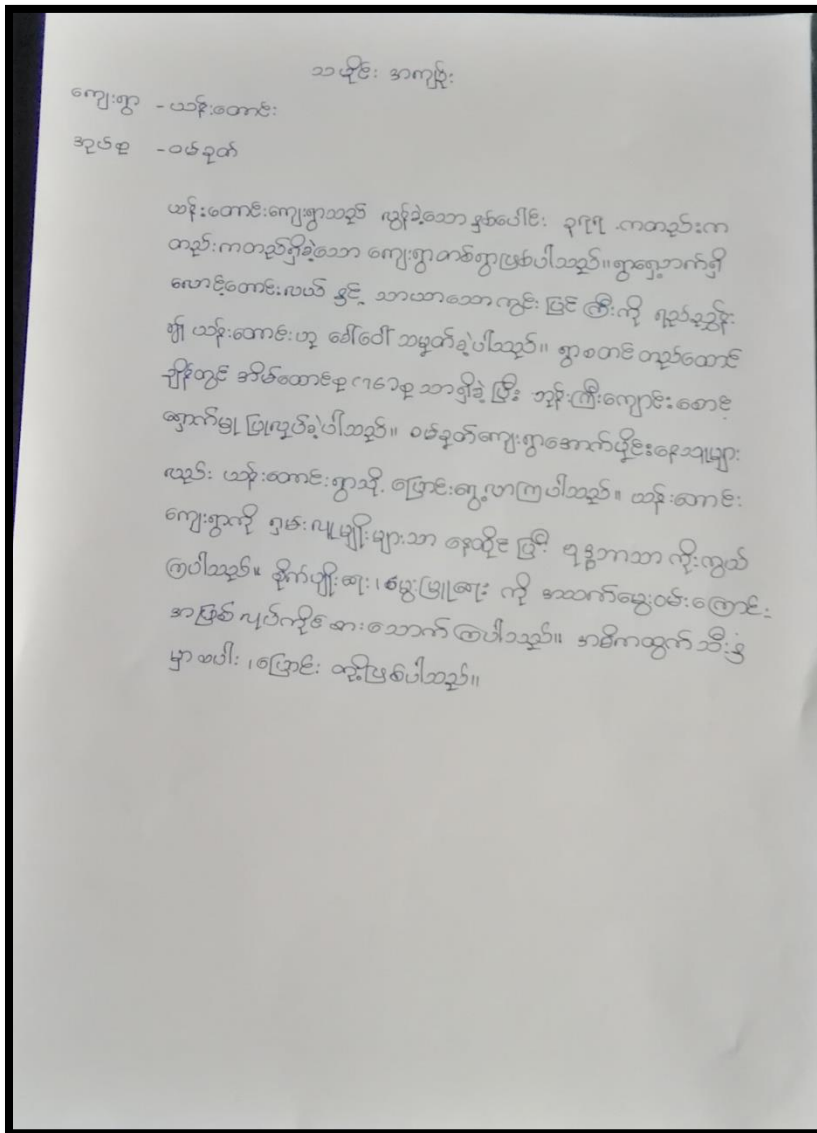 သမိုင်း အကျဉ်း
ကျေးရွာ - ယန်းတောင်း
အုပ်စု - ဝမ်ခုတ်
ယန်းတောင်းကျေးရွာသည် လွန်ခဲ့သော နှစ်ပေါင်း ၃၅၅ ကတည်းက
တည်းကတည်ရှိခဲ့သော ကျေးရွာတစ်ရွာဖြစ်ပါသည်။ ရွာရှေ့ဘက်ရှိ
လောင့်တောင်းလယ် နှင့် သာယာသောကွင်းပြင်ကြီးကို ရည်ညွှန်း
၍ ယန်းတောင်းဟု ခေါ်ဝေါ် သမုတ်ခဲ့ပါသည်။ ရွာစတင်တည်ထောင်
ချိန်တွင် အိမ်ထောင်စု (၁၆)စု သာရှိခဲ့ပြီး ဘုန်းကြီးကျောင်းစောင့်
ရှောက်မှု ပြုလုပ်ခဲ့ပါသည်။ ဝမ်ခုတ်ကျေးရွာအောက်ပိုင်းနေသူများ
လည်း ယန်းတောင်းရွာသို့ ပြောင်းရွေ့လာကြပါသည်။ ယန်းတောင်း
ကျေးရွာကို ရှမ်းလူမျိုးများသာ နေထိုင်ပြီး ဗုဒ္ဓဘာသာ ကိုးကွယ်
ကြပါသည်။ စိုက်ပျိုးရေး ၊ မွေးမြူရေး ကို အသက်မွေးဝမ်းကြောင်း
အဖြစ် လုပ်ကိုင်စားသောက်ကြပါသည်။ အဓိကထွက်သီးနှံ
မှာ စပါး ၊ ပြောင်း တို့ဖြစ်ပါသည်။